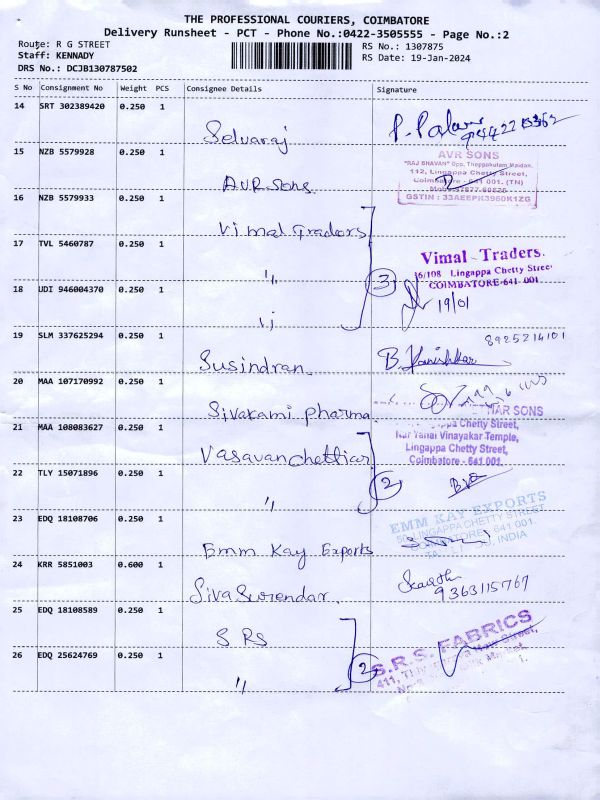 THE PROFESSIONAL COURIERS, COIMBATORE
Delivery Runsheet - PCT - Phone No.:0422-3505555 - Page No.:2
Route: R G STREET
RS No.: 1307875
Staff: KENNADY
RS Date: 19-Jan-2024
DRS No.: DCJB130787502
S No Consignment No Weight PCS Consignee Details Signature
14 SRT 302389420 0.250 1
Selvaraj
15 NZB 5579928 0.250 1
AVR Sons
AVR SONS
"RAJ BHAVAN" Opp. Theppakulam Maidan,
112, Lingappa Chetty Street,
Coimbatore - 641 001. (TN)
GSTIN : 33AEEPK3960K1ZG
16 NZB 5579933 0.250 1
Vimal Traders
17 TVL 5460787 0.250 1
"
3
Vimal Traders.
16/108 Lingappa Chetty Street
COIMBATORE-641 001
19/01
18 UDI 946004370 0.250 1
"
19 SLM 337625294 0.250 1
Susindran
8925214101
B. Kanishkar
20 MAA 107170992 0.250 1
Sivakami pharma
21 MAA 108083627 0.250 1
Vasavanchettiar
Chetty Street,
Vinayakar Temple,
Lingappa Chetty Street,
Coimbatore - 641 001.
22 TLY 15071896 0.250 1
"
2
23 EDQ 18108706 0.250 1
Emm Kay Exports
EMM KAY EXPORTS
LINGAPPA CHETTY STREET
COIMBATORE - 641 001.
INDIA
24 KRR 5851003 0.600 1
SivaSurendar.
9363115767
25 EDQ 18108589 0.250 1
S RS
26 EDQ 25624769 0.250 1
"
2
S.R.S. FABRICS